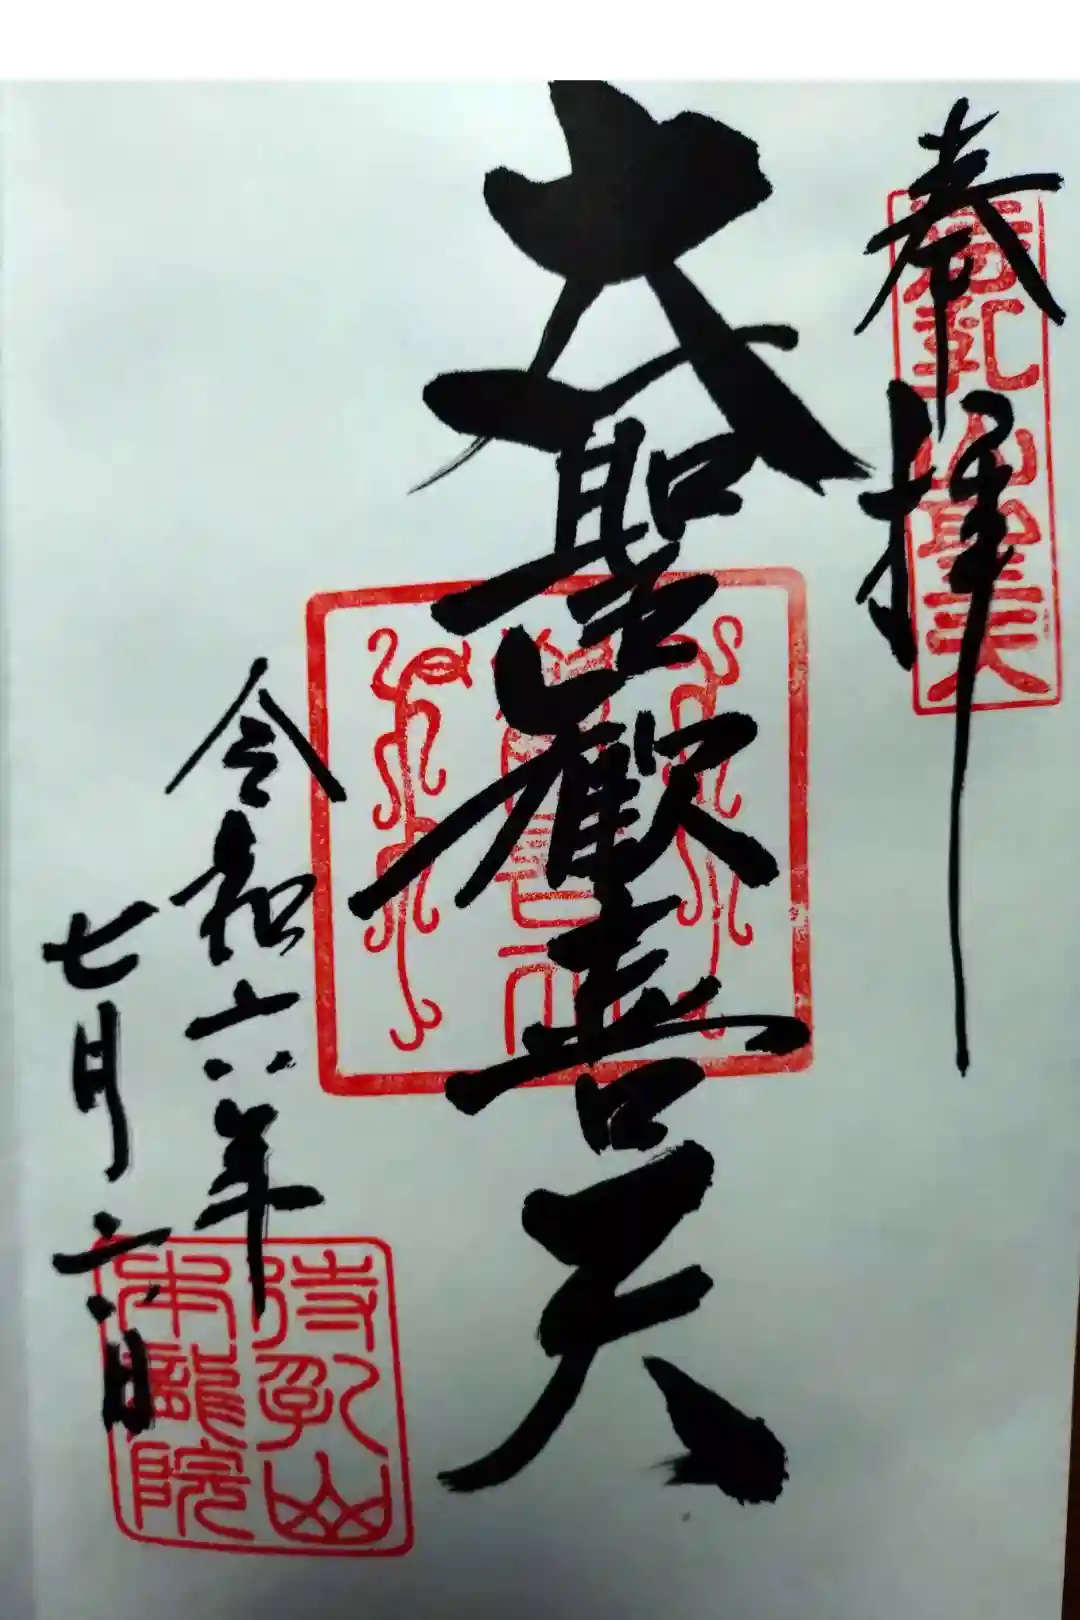 奉拝
待乳山聖天
大聖歓喜天
令和六年
七月六日
待乳山
本龍院